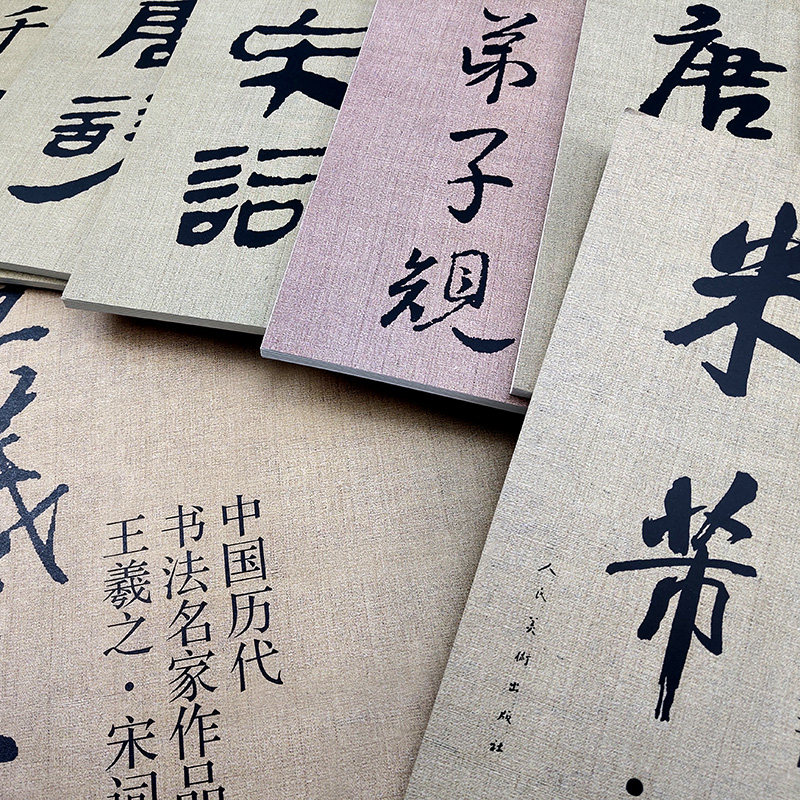 千
宋詞
弟子規
唐
米芾
人民美術出版社
羲
中国历代
书法名家作品
王羲之·宋词